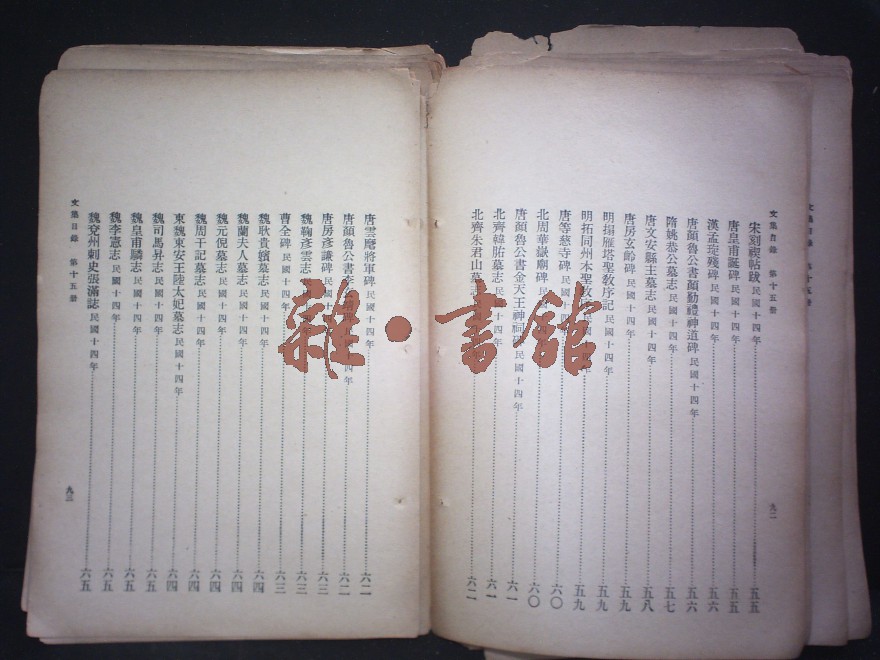 文集目錄 第十五冊
文集目錄 第十五冊
宋刻禊帖跋民國十四年 五五
唐皇甫誕碑民國十四年 五五
漢孟琁殘碑民國十四年 五六
唐顏魯公書顏勤禮神道碑民國十四年 五六
隋姚恭公墓志民國十四年 五七
唐文安縣主墓志民國十四年 五八
唐房玄齡碑民國十四年 五九
明搨雁塔聖教序記民國十四年 五九
明拓同州本聖教 民國十四年 五九
唐等慈寺碑民國十四年 六〇
北周華嶽廟碑民國十四年 六〇
唐顏魯公書金天王神祠 民國十四年 六一
北齊韓胎墓志民國十四年 六一
北齊朱君山墓 六二
九二
唐雲麾將軍碑民國十四年 六二
唐顏魯公書李 民國十四年 六二
唐房彥謙碑民國十四年 六三
魏鞠彥雲志民國十四年 六三
曹全碑民國十四年 六三
魏耿貴嬪墓志民國十四年 六四
魏蘭夫人墓志民國十四年 六四
魏元倪墓志民國十四年 六四
魏周干記墓志民國十四年 六四
東魏東安王陸太妃墓志民國十四年 六四
魏司馬昇志民國十四年 六五
魏皇甫驎志民國十四年 六五
魏李憲志民國十四年 六五
魏兗州刺史張滿誌民國十四年 六五
文集目錄 第十五冊
九三
雜·書館